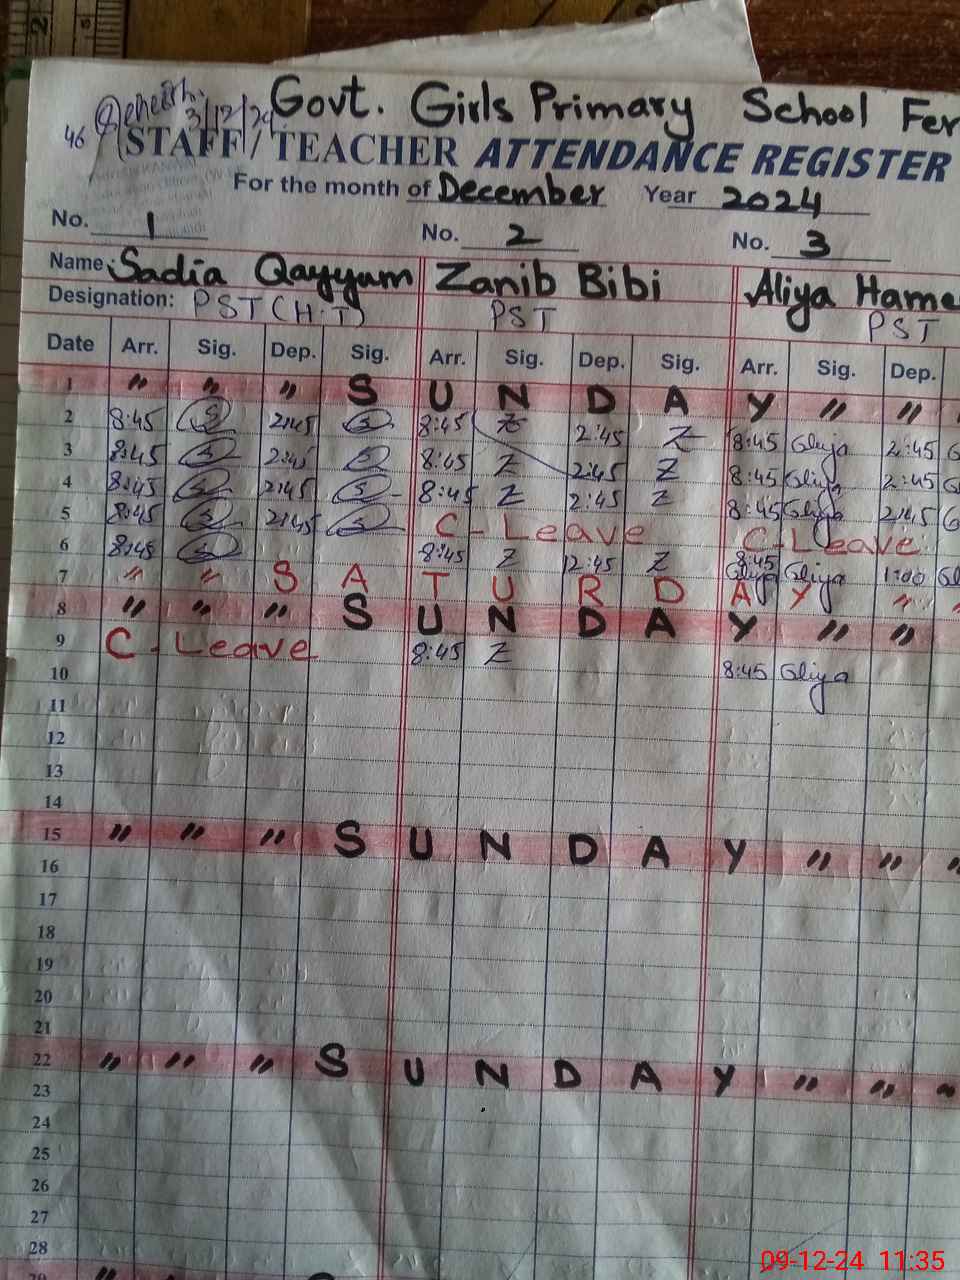 3/12/24 Govt. Girls Primary School Fer
46 STAFF / TEACHER ATTENDANCE REGISTER
For the month of December Year 2024
No. 1 No. 2 No. 3
Name Sadia Qayyum Zanib Bibi Aliya Hame
Designation: PST (H.T) PST PST
Date Arr. Sig. Dep. Sig. Arr. Sig. Dep. Sig. Arr. Sig. Dep.
1 " " " S U N D A Y " "
2 8:45 S 2:45 S 8:45 Z 2:45 Z 8:45 Aliya 2:45
3 8:45 S 2:45 S 8:45 Z 2:45 Z 8:45 Aliya 2:45
4 8:45 S 2:45 S 8:45 Z 2:45 Z 8:45 Aliya 2:45
5 8:45 S 2:45 S C - Leave C - Leave
6 8:45 S 8:45 Z 12:45 Z 8:45 Aliya 1:00
7 " " S A T U R D A Y "
8 " " " S U N D A Y " "
9 C - Leave 8:45 Z 8:45 Aliya
10
11
12
13
14
15 " " " S U N D A Y " " "
16
17
18
19
20
21
22 " " " S U N D A Y " " "
23
24
25
26
27
28
29 "
09-12-24 11:35